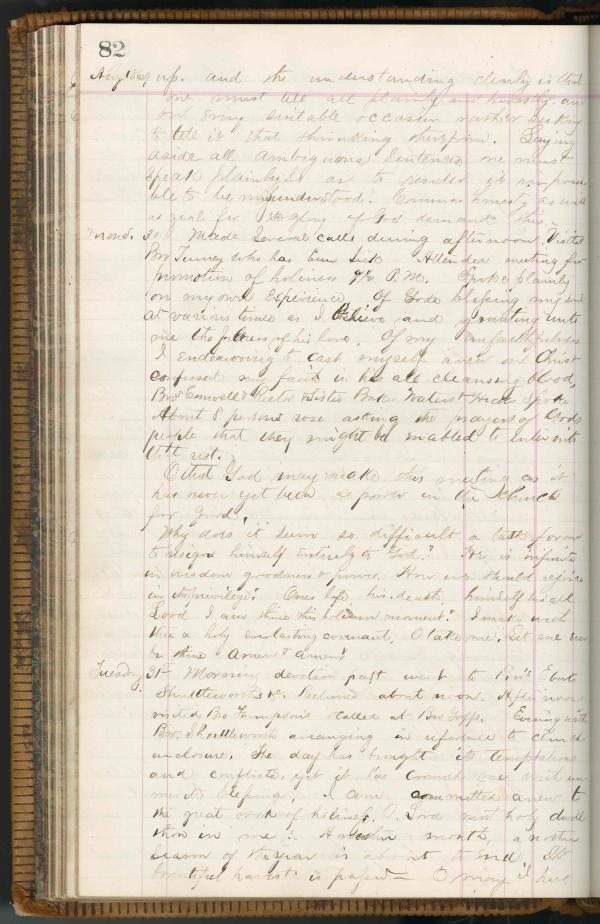 82
Aug 1869 up. and the understanding clearly is that
we must tell all plainly and honestly. and
on every suitable occasion rather seeking
to tell it that shrinking therefrom. Laying
aside all ambiguous sentences we must
speak plainly so as to render it impossi
ble to be misunderstood. Common honesty as well
as zeal for the glory of God demands this
Mond. 30 Made several calls during afternoon. Visited
Bro Tenney who has been sick Attended meeting for
promotion of holiness 7½ P.M. Spoke plainly
on my own experience Of Gods blessing my soul
at various times as I believe and granting unto
me the fulness of his love. Of my unfaithfulness
I endeavoring to cast myself anew on Christ
confessed my faith in his all cleansing blood,
Bro Sister Baker spoke
About 8 persons rose asking the prayers of Gods
people that they might be enabled to enter into
that rest.
O that God may make this meeting as it
has never yet been a power in the Church
for good.
Why does it seem so difficult a task for one
to resign himself entirely to God? He is infinite
in wisdom goodness & power. How we should rejoice
in the privilege! Ones life his death himself his all
Lord I am thine this solemn moment! I make with
thee a holy everlasting covenant. O take me. Let me ever
be thine Amen & amen!
Tuesday 31st Morning devotion past went to Bro
Shuttleworths &c. Returned about noon. Afternoon
visited Bro Thompsons called at Bro Goffs. Evening with
Bro. Shuttleworth arranging in reference to church
inclosure. The day has brought its temptations
and conflicts, yet it has crowned me with un
merited blessing, I am committed anew to
the great work of holiness. O Lord most holy dwell
thou in me! Another month, another
season of the year is about to end. Its
beautiful harvest is passed — O may it have